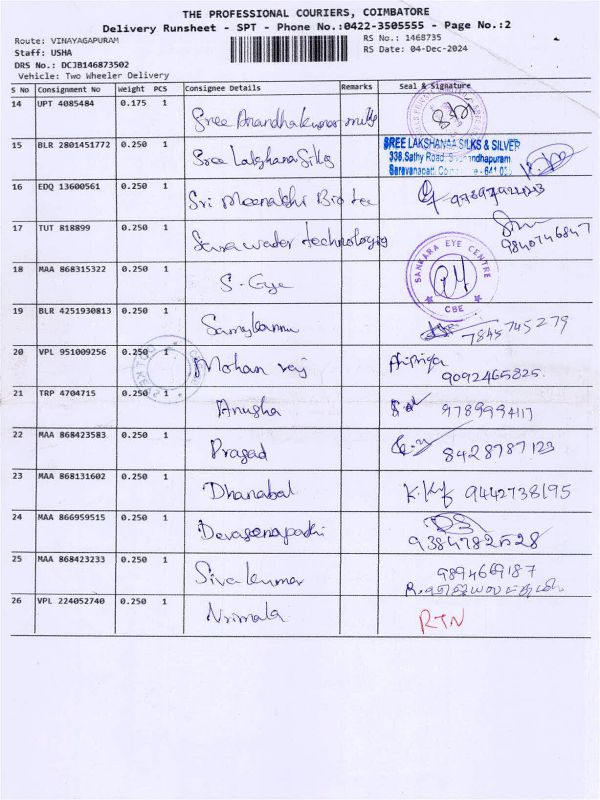 THE PROFESSIONAL COURIERS, COIMBATORE
Delivery Runsheet - SPT - Phone No.:0422-3505555 - Page No.:2
Route: VINAYAGAPURAM
RS No.: 1468735
Staff: USHA
RS Date: 04-Dec-2024
DRS No.: DCJB146873502
Vehicle: Two Wheeler Delivery
S No Consignment No Weight PCS Consignee Details Remarks Seal & Signature
14 UPT 4085484 0.175 1 Sree Anandhakumar mills
15 BLR 2801451772 0.250 1 Sree Lakshana Silks
SREE LAKSHANAA SILKS & SILVER
338, Sathy Road,
Saravanapatti
16 EDQ 13600561 0.250 1 Sri Meenakshi Bio tec
17 TUT 818899 0.250 1 water technologies 9840746847
18 MAA 868315322 0.250 1 S. Eye
SANKARA EYE CENTRE
CBE
19 BLR 4251930813 0.250 1 Samykannu 7845745279
20 VPL 951009256 0.250 1 Mohan raj 9092465825.
21 TRP 4704715 0.250 1 Anusha 9789994117
22 MAA 868423583 0.250 1 Prasad 8428787123
23 MAA 868131602 0.250 1 Dhanabal 9442738195
24 MAA 866959515 0.250 1 Devaseenapathi
25 MAA 868423233 0.250 1 Siva kumar 9894669187
26 VPL 224052740 0.250 1 Nrimala RTN